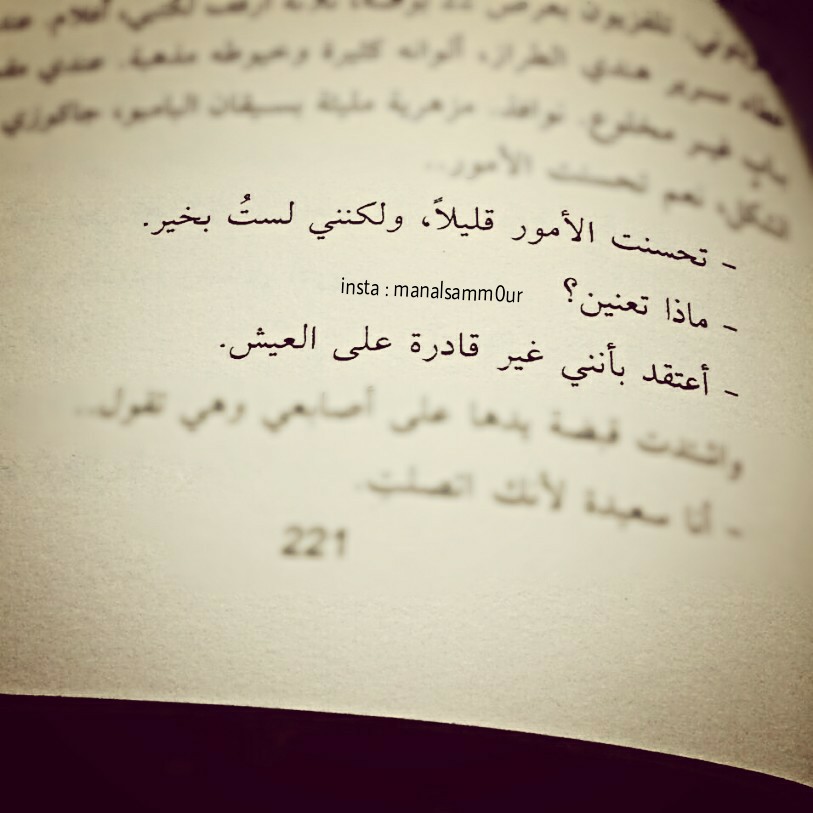 تلفزيون بعرض
سرير هندي الطراز، ألوانه كثيرة وخيوطه مذهبة. عندي
باب غير مخلوع. نوافذ. مزهرية مليئة بسيقان البامبو، جاكوزي
نعم تحسنت الأمور..
- تحسنت الأمور قليلاً، ولكنني لستُ بخير.
- ماذا تعنين؟
insta : manalsamm0ur
- أعتقد بأنني غير قادرة على العيش.
واشتدت قبضة يدها على أصابعي وهي تقول..
- أنا سعيدة لأنك اتصلتِ.
221